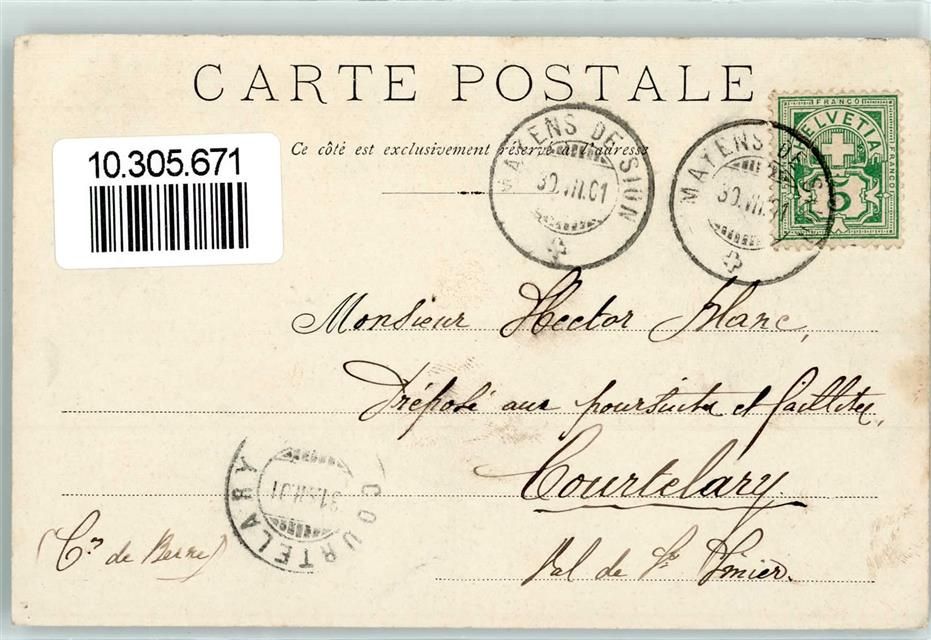 CARTE POSTALE
10.305.671
Ce côté est exclusivement réservé à l'adresse
MAYENS DE SION
30.VII.01
MAYENS DE SION
30.VII.01
FRANCO
HELVETIA
FRANCO
5
Monsieur Hector Blanc,
Préposé aux poursuites et faillites,
Courtelary
(Cn de Berne)
Val de St Imier.
COURTELARY
31.VII.01